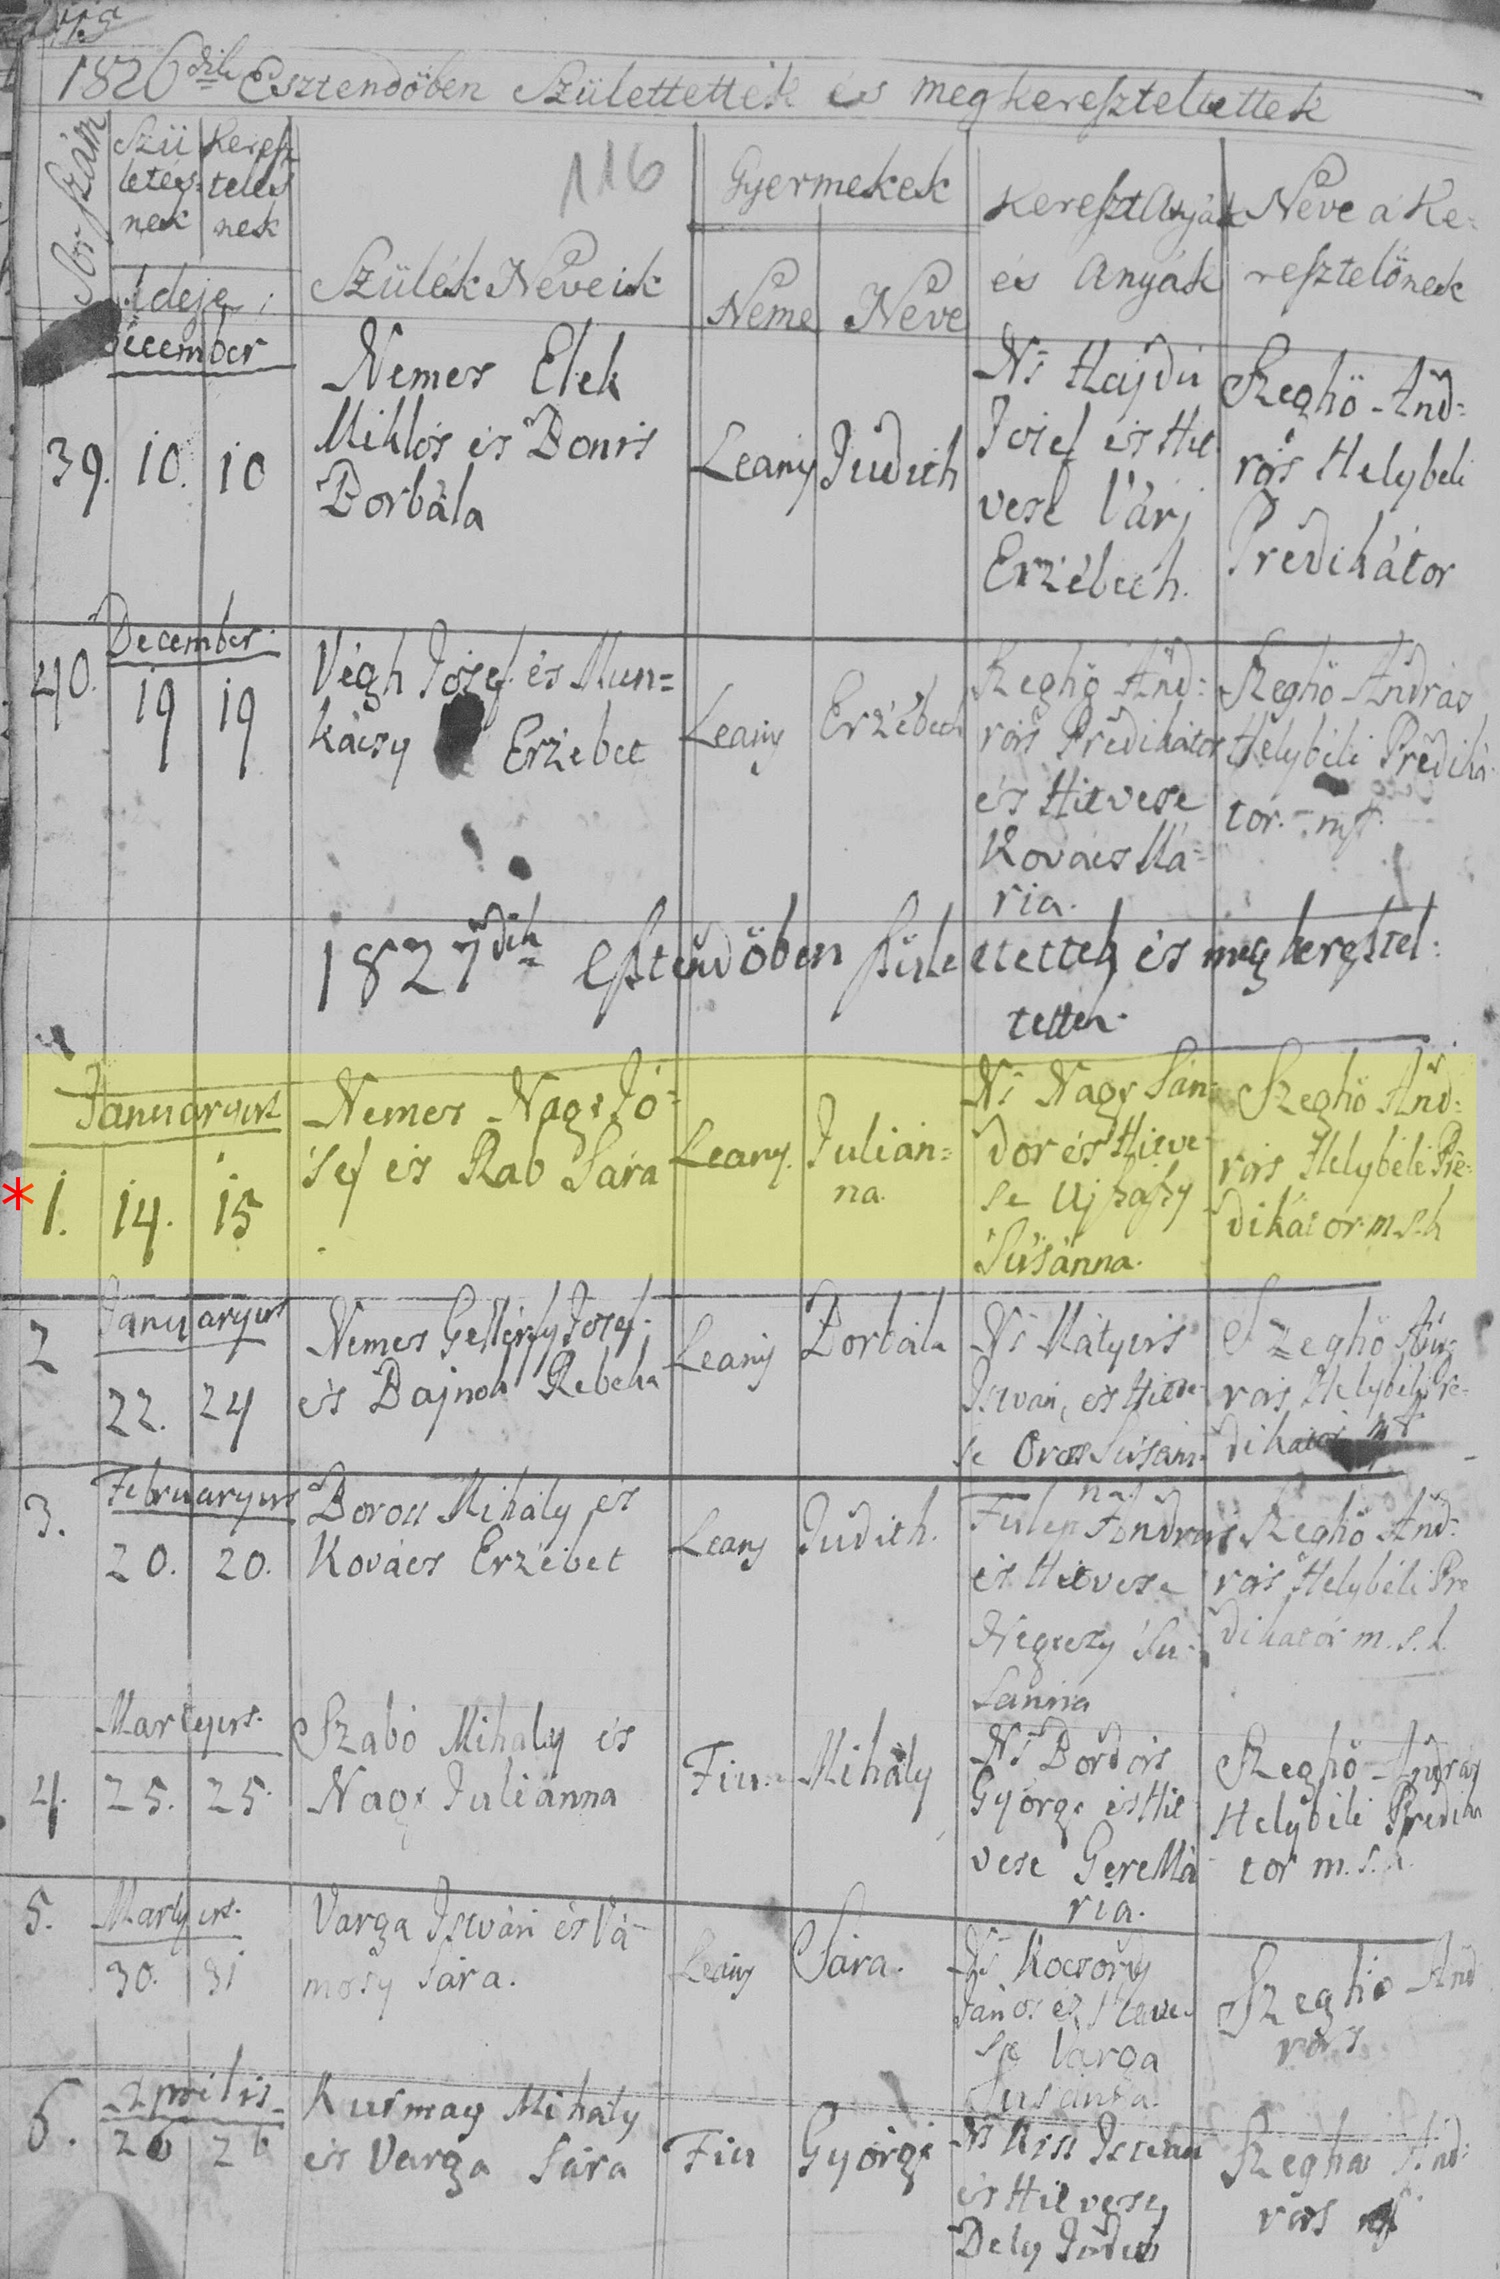 1826dik Esztendőben Születtettek és megkereszteltettek
Sor Szám
Szü
letés
nek
Keresz
telés
nek
Ideje
116
Szülék Neveik
Gyermekek
Neme
Neve
Kereszt Atyák
és Anyák
Neve a Ke=
resztelőnek
December
39. 10. 10
Nemes Elek
Miklós és Boris
Borbála
Leány
Judith
Ns Hajdu
Josef és Hit
vese Várj
Erzébeth.
Szeghő And=
rás Helybéli
Prédikátor
December
40. 19 19
Végh Jósef és Mun=
kácsy Erzébet
Leány
Erzébeth
Szeghő And=
rás Prédikátor
és Hitvese
Kovács Má=
ria.
Szeghő András
Helybéli Prédiká
tor. mp.
1827dik Esztendőben születtettek és megkeresztel=
tettek.
Januaryus
1. 14. 15
Nemes Nagy Jó=
sef és Rab Sára
Leány.
Julián=
na.
Ns Nagy Sán=
dor és Hitve
se Ujházy
Susánna.
Szeghő And=
rás Helybéli Pré=
dikátor m.s.k
Januaryus
2 22. 24
Nemes Gellérfy Josef
és Bajnok Rebeka
Leány
Borbála
Ns Mátyus
István, és Hitve
se Oros Susan=
na
Szeghő An=
rás Helybéli Pré=
dikátor
Februaryus
3. 20. 20.
Boros Mihály és
Kovács Erzébet
Leány
Judith.
Fülep András
és Hitvese
Négyesy Su=
sánna
Szeghő And=
rás Helybéli Pré
dikátor m.s.k.
Martyus.
4. 25. 25.
Szabó Mihály és
Nagy Juliánna
Fiu
Mihály
Ns Bordás
György és Hit
vese Gere Má
ria.
Szeghő András
Helybéli Prédiká
tor m.s.k.
Martyus.
5. 30. 31
Varga István és Vá=
mosy Sára.
Leány
Sára.
Ns Kocsordy
János és Hitve
se Varga
Susánna.
Szeghő And
rás
Aprilis
6. 26 26
Kurmay Mihály
és Varga Sára
Fiu
György
Ns Kiss István
és Hitvese
Dely Judith
Szeghő And=
rás